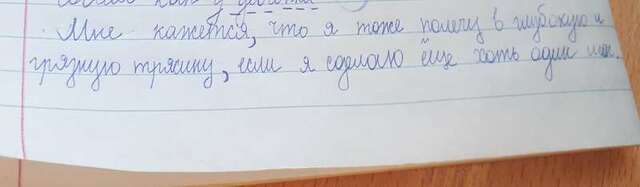 как у
Мне кажется, что я тоже полечу в глубокую и
грязную трясину, если я сделаю ещё хоть один шаг.